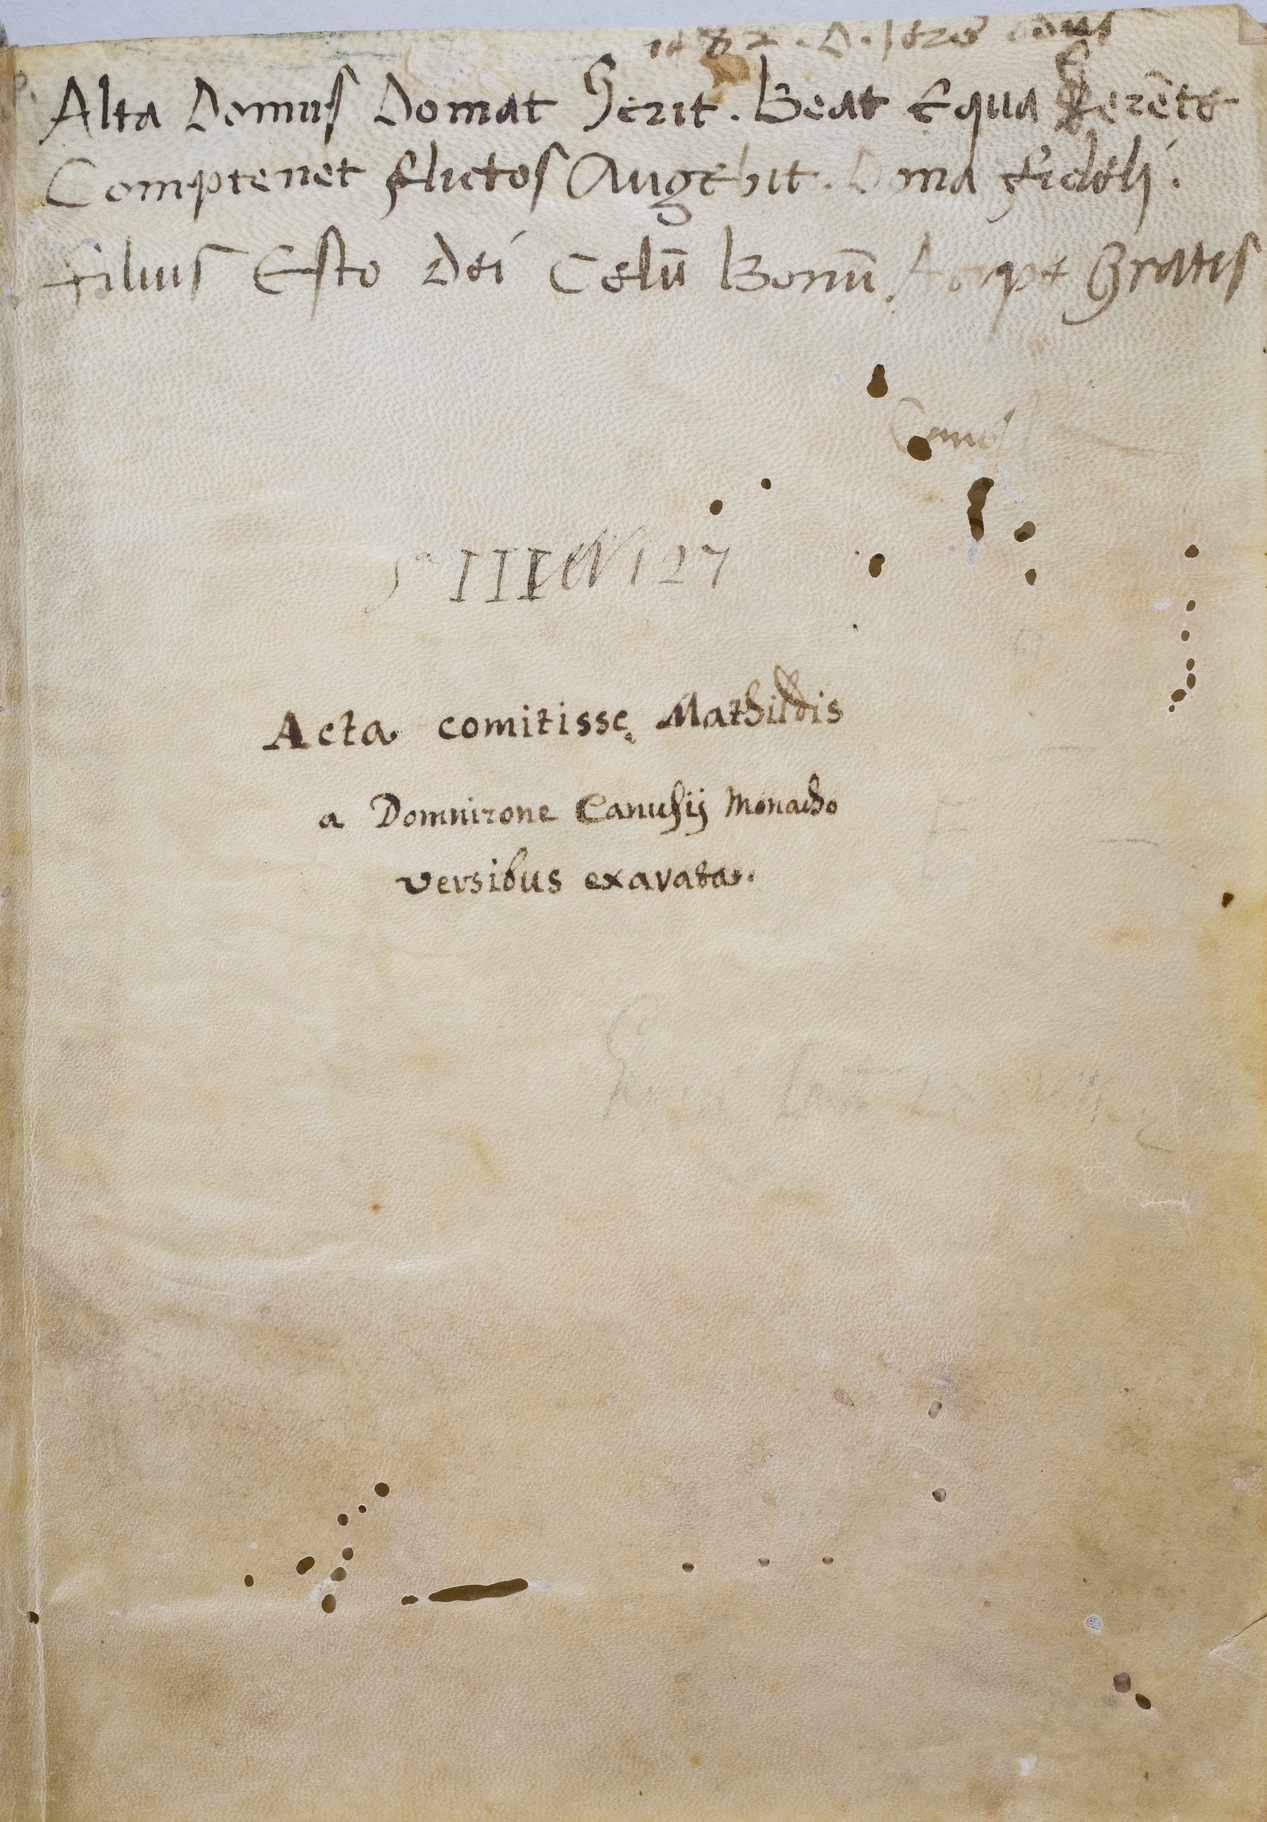 1482
Alta Domus Domat Gerit. Beat Equa Gerēte
Comptenet flictos Augebit. Dona fideli.
Filius Esto Dei Celū Bonū Accipe Gratis
III N 127
Acta comitissę Mathildis
a Domnizone Canusij Monacho
versibus exarata.